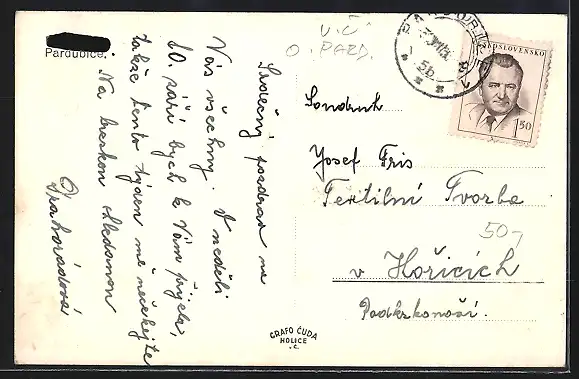 V.Č.
O. PARD.
Pardubice.
ČESKOSLOVENSKO
1.50
Srdečný pozdrav na
Vás všechny. V neděli
10. září bych k Vám přijela,
takže tento týden mě nečekejte
Na brzkou shledanou
Soudruh
Josef Fris
Textilní Tvorba
50,-
v Hořicích
Podkrkonoší.
GRAFO ČUDA
HOLICE
v.Č.